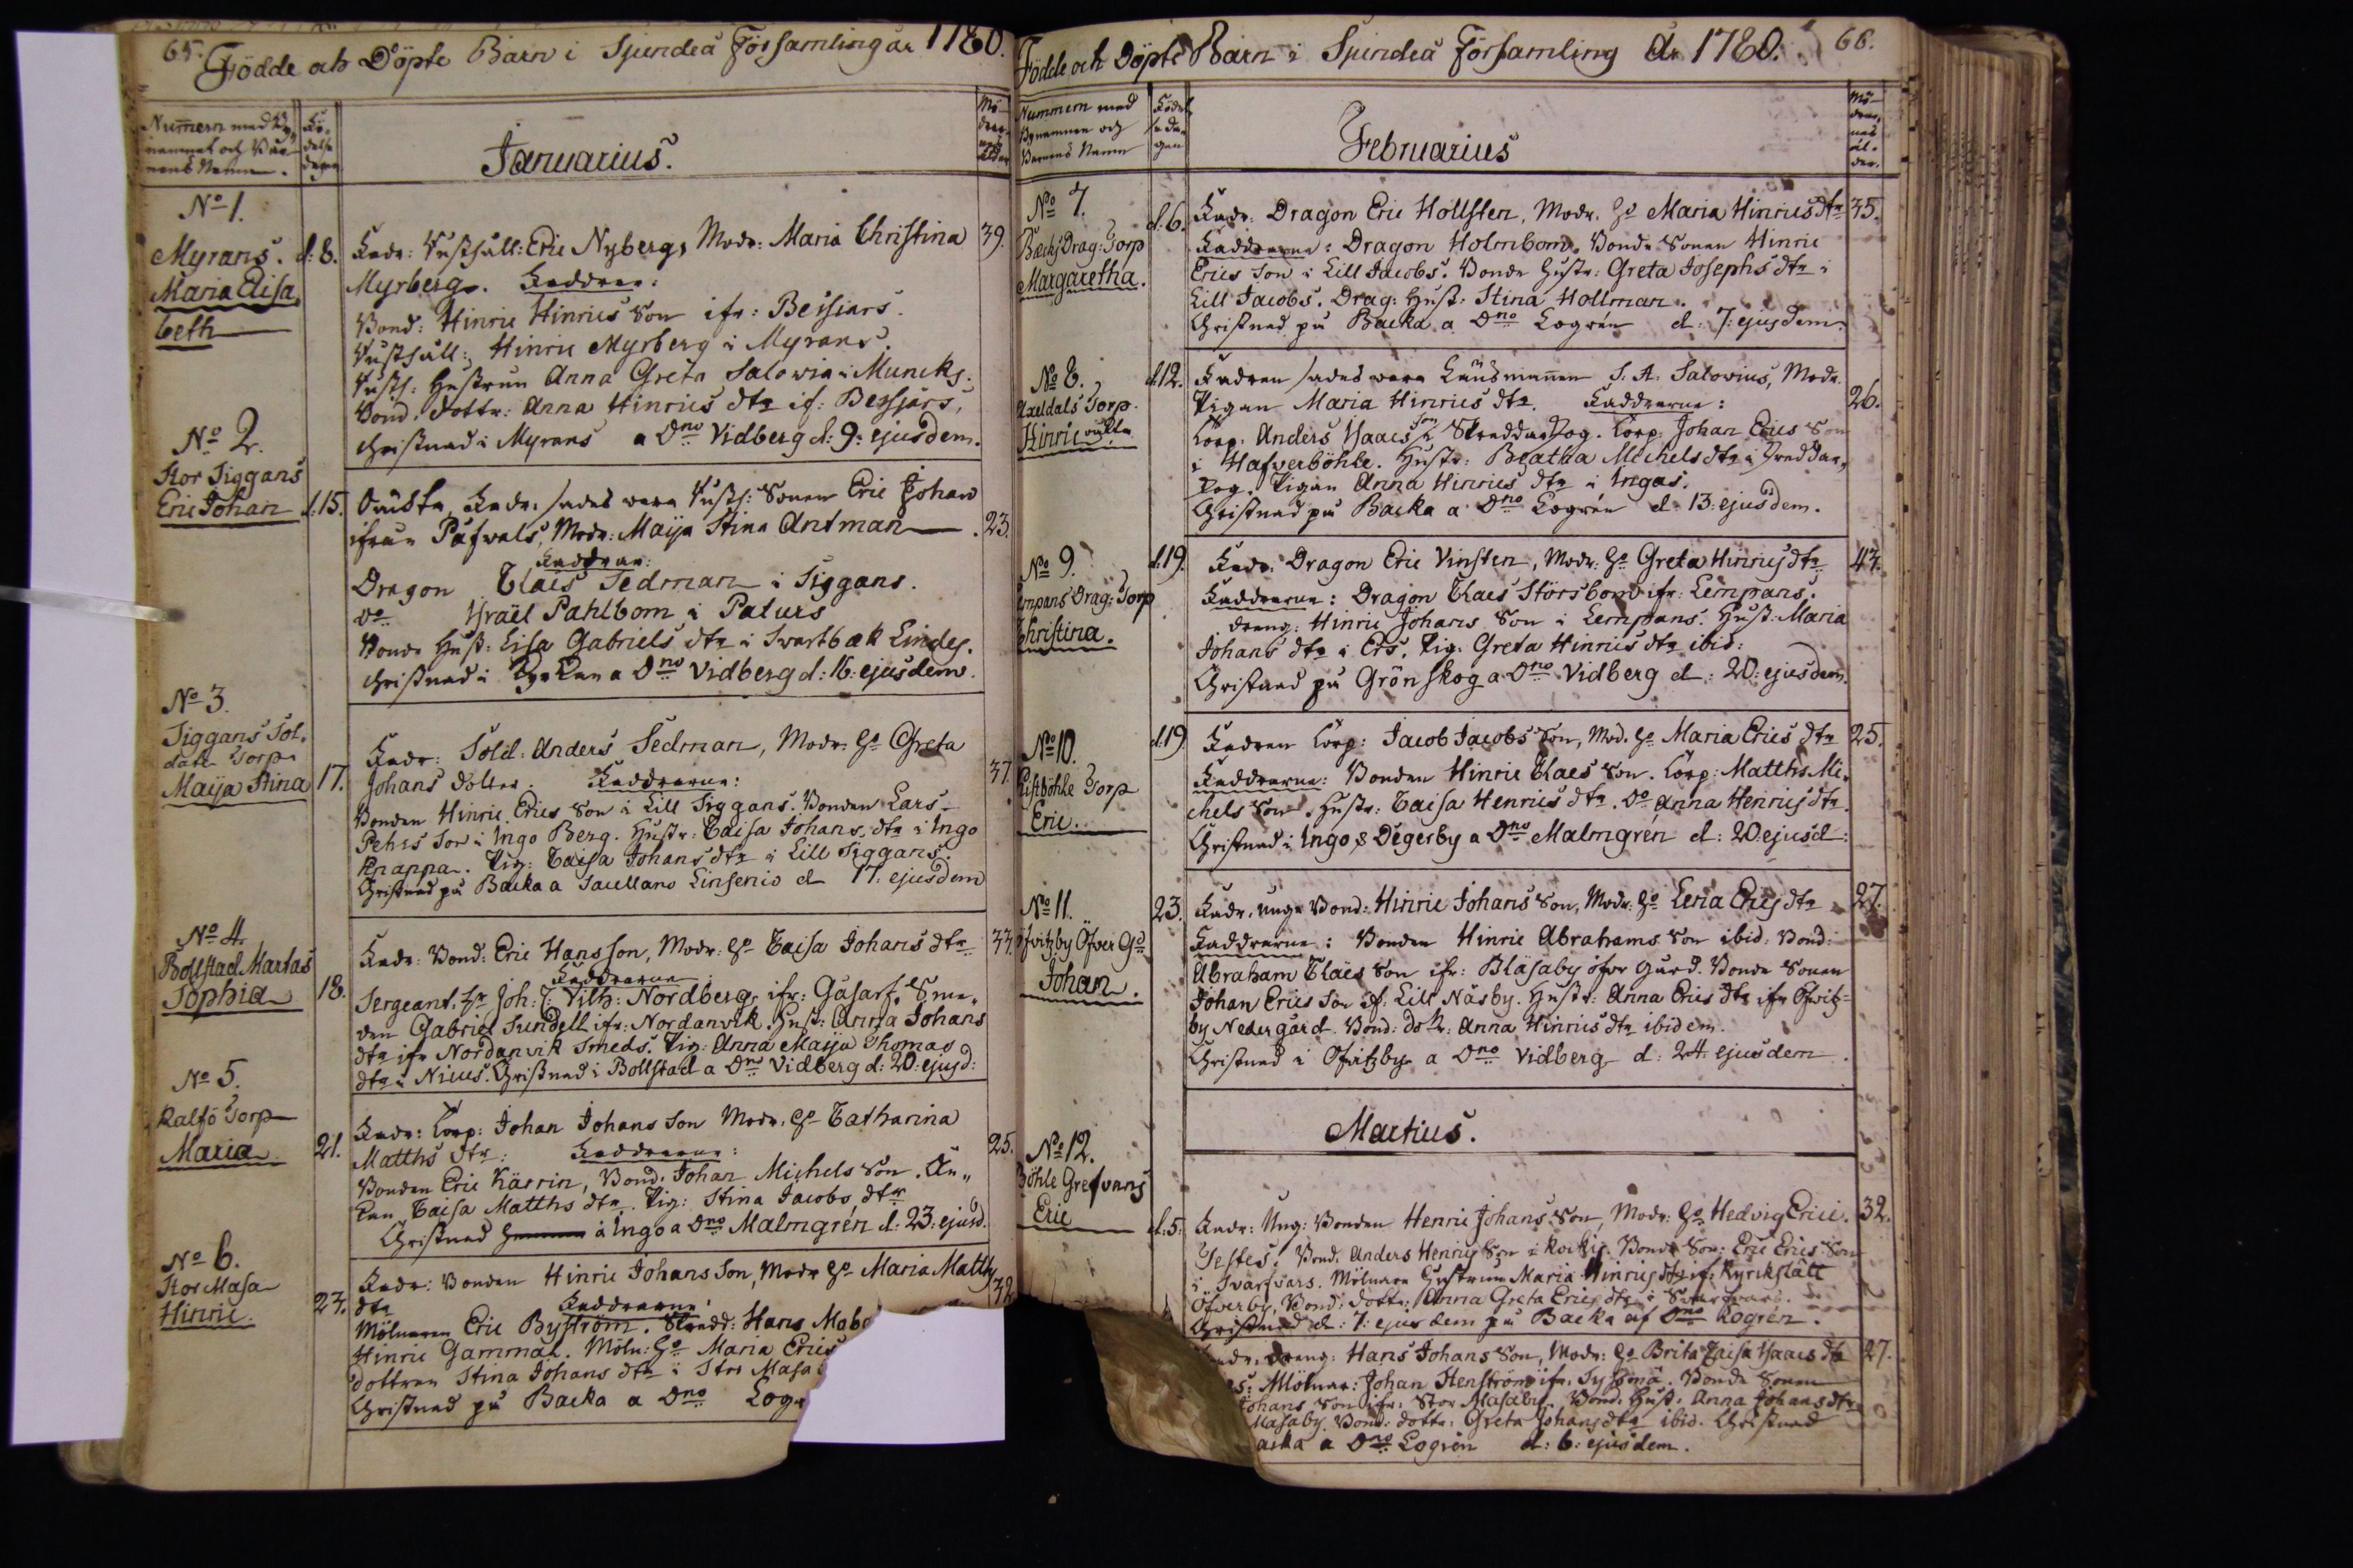 65. Födde och Döpte Barn i Sjundeå Församling år 1780.
Num̅ern med By-
namnet och Bar-
nens Namn.
Fö-
delse
dagen
Januarius.
Mö-
drar-
nas
ålder
No 1.
Myrans.
Maria Elisa
beth
d: 8.
Fadr: Rusthåll: Eric Nyberg, Modr: Maria Christina
39.
Myrberg. Faddrar:
Bond: Hinric Hinrics Son ifr: Beisiars.
Rusthåll: Hinric Myrberg i Myrans.
Rusth: Hustrun Anna Greta Salovia i Muncks.
Bond. dottr: Anna Hinrics dtr if: Beisjars,
christnad i Myrans a Dno Vidberg d: 9: ejusdem.
No 2.
Stor Siggans
Eric Johan
d. 15.
Oächta, Fadr. sades wara Rusth: Sonen Eric Johan
ifrån Påfwals, Modr: Maija Stina Antman
23.
Faddrar:
Dragon Claës Sedman i Siggans.
Do Israël Pahlbom i Palurs
Bonde Hust: Lisa Gabriels dtr i Svartbäk Lindes.
christnad i a Dno Vidberg d: 16: ejusdem.
No 3.
Siggans Sol-
date Torp
Maija Stina
17.
Fadr: Sold: Anders Sedman, Modr: Ho Greta
Johans dotter. Faddrarne:
37.
Bonden Hinric Erics Son i Lill Siggans. Bonden Lars
Pehrs Son i Ingo Berg. Hustr: Caisa Johans dtr i Ingo
Knappa. Pig: Caisa Johans dtr i Lill Siggans.
Christnad på Backa a Sacellano Linsenio d 17. ejusdem
No 4.
Bollstad Martas
Sophia
18.
Fadr: Bond: Eric Hans Son, Modr: Ho Caisa Johans dtr
33.
Faddrarne
Sergeant. Hr Joh: Vilh: Nordberg, ifr: Gåsarf. Sme-
den Gabriel Sundell ifr: Nordanvik. Hust: Anna Johans
dtr ifr Nordanvik Smeds. Pig: Anna Maija Thomas
dtr i Nicus. Christnad i Bollstad a Dno Vidberg d: 20: ejusd:
No 5.
Kalfö Torp
Maria
21.
Fadr: Torp: Johan Johans Son Modr: Ho Catharina
Matths dtr: Faddrarne:
25.
Bonden Eric Kårrin, Bond: Johan Michels Son. En-
kan Caisa Matths dtr. Pig: Stina Jacobs dtr
Christnad i Ingo a Dno Malmgrén d: 23: ejusd.
No 6.
Stor Masa
Hinric.
23.
Fadr: Bonden Hinric Johans Son, Modr Ho Maria Matths
dtr Faddrarne:
38
Mölnaren Eric Byström. Skredd: Hans
Hinric Gammal. Möln: Ho Maria Erics
dottren Stina Johans dtr i Stor Masa
Christnad på Backa a Dno Logr
Födde och Döpte Barn i Sjundeå Församling År 1780. 66.
Nummern med
Bynamnen och
Barnens Namn
Födel-
se da-
gen
Februarius
Mö-
drar-
nas
ål-
der.
No 7.
Bäcks Drag: Torp
Margaretha.
d. 6.
Fadr: Dragon Eric Hollsten, Modr. Ho Maria Hinrics dtr
35.
Faddrarne: Dragon Holmbom. Bonde Sonen Hinric
Erics Son i Lill Jacobs. Bonde Hustr: Greta Josephs dtr i
Lill Jacobs. Drag: Hust: Stina Hollman.
Christnad på Backa a Dno Logrén d: 7: ejusdem.
No 8.
Axeldals Torp.
Hinric oächta
d. 12.
Fadren sades wara Länsmannen S. A. Salovius, Modr.
Pigan Maria Hinrics dtr. Faddrarne:
26.
Torp: Anders Isaacs Son i Skreddarskog. Torp: Johan Erics Son
i Hafverböhle. Hustr: Beatha Michels dtr i Skreddar-
skog. Pigan Anna Hinrics dtr i Ingas.
Christnad på Backa a Dno Logrén d: 13: ejusdem.
No 9.
Lempans Drag: Torp
Christina.
d. 19.
Fadr: Dragon Eric Vinsten, Modr: Ho Greta Hinrics dtr
43.
Faddrarne: Dragon Claes Störsbom ifr: Lempans.
dreng: Hinric Johans Son i Lempans. Hust: Maria
Johans dtr i Ers. Pig: Greta Hinrics dtr ibid:
Christnad på Grönskog a Dno Vidberg d: 20: ejusdem.
No 10.
Kistböhle Torp
Eric.
d. 19
Fadren Torp: Jacob Jacobs Son, Mod. Ho Maria Erics dtr
25.
Faddrarne: Bonden Hinric Claes Son. Torp: Matths Mi-
chels Son. Hustr: Caisa Henrics dtr. Do Anna Henrics dtr.
Christnad i Ingo & Degerby a Dno Malmgrén d: 20 ejusd:
No 11.
Ofvitzby Öfver Gd
Johan.
23.
Fadr. unga Bond: Hinric Johans Son, Modr: Ho Lena Erics dtr
27.
Faddrarne: Bonden Hinric Abrahams Son ibid: Bond:
Abraham Claës Son ifr: Bläsaby öfvre gård. Bonde Sonen
Johan Erics Son if: Lill Näsby. Hustr: Anna Erics dtr ifr Ofvitz-
by Nedergård. Bond: dotr: Anna Hinrics dtr ibidem.
Christnad i Ofvitzby a Dno Vidberg d: 24. ejusdem.
Martius.
No 12.
Böhle Grefvans
Eric
d: 5.
Fadr: Ung: Bonden Henric Johans Son, Modr: Ho Hedvig Erici.
32.
Testes. Bond. Anders Henrics Son i Bonde Son: Eric Erics Son
i Svartvars. Mölnare Hustrun Maria Hinrics dtr if: Kyrkslätt
Öfverby, Bond: dottr: Anna Greta Erics dtr i
Christnad d: 7: ejusdem på Backa af Dno Logrén.
Fadr. dreng: Hans Johans Son, Modr: Ho Brita Caisa Isaacs dtr
27.
es: Mölnar: Johan Stenström ifr: . Bonde Sonen
Johans Son ifr: Stor Masaby. Bond: Hust: Anna Johans dtr
Masaby. Bond: dottr: Greta Johans dtr ibid. Christnad
acka a Dno Logrén d: 6: ejusdem.